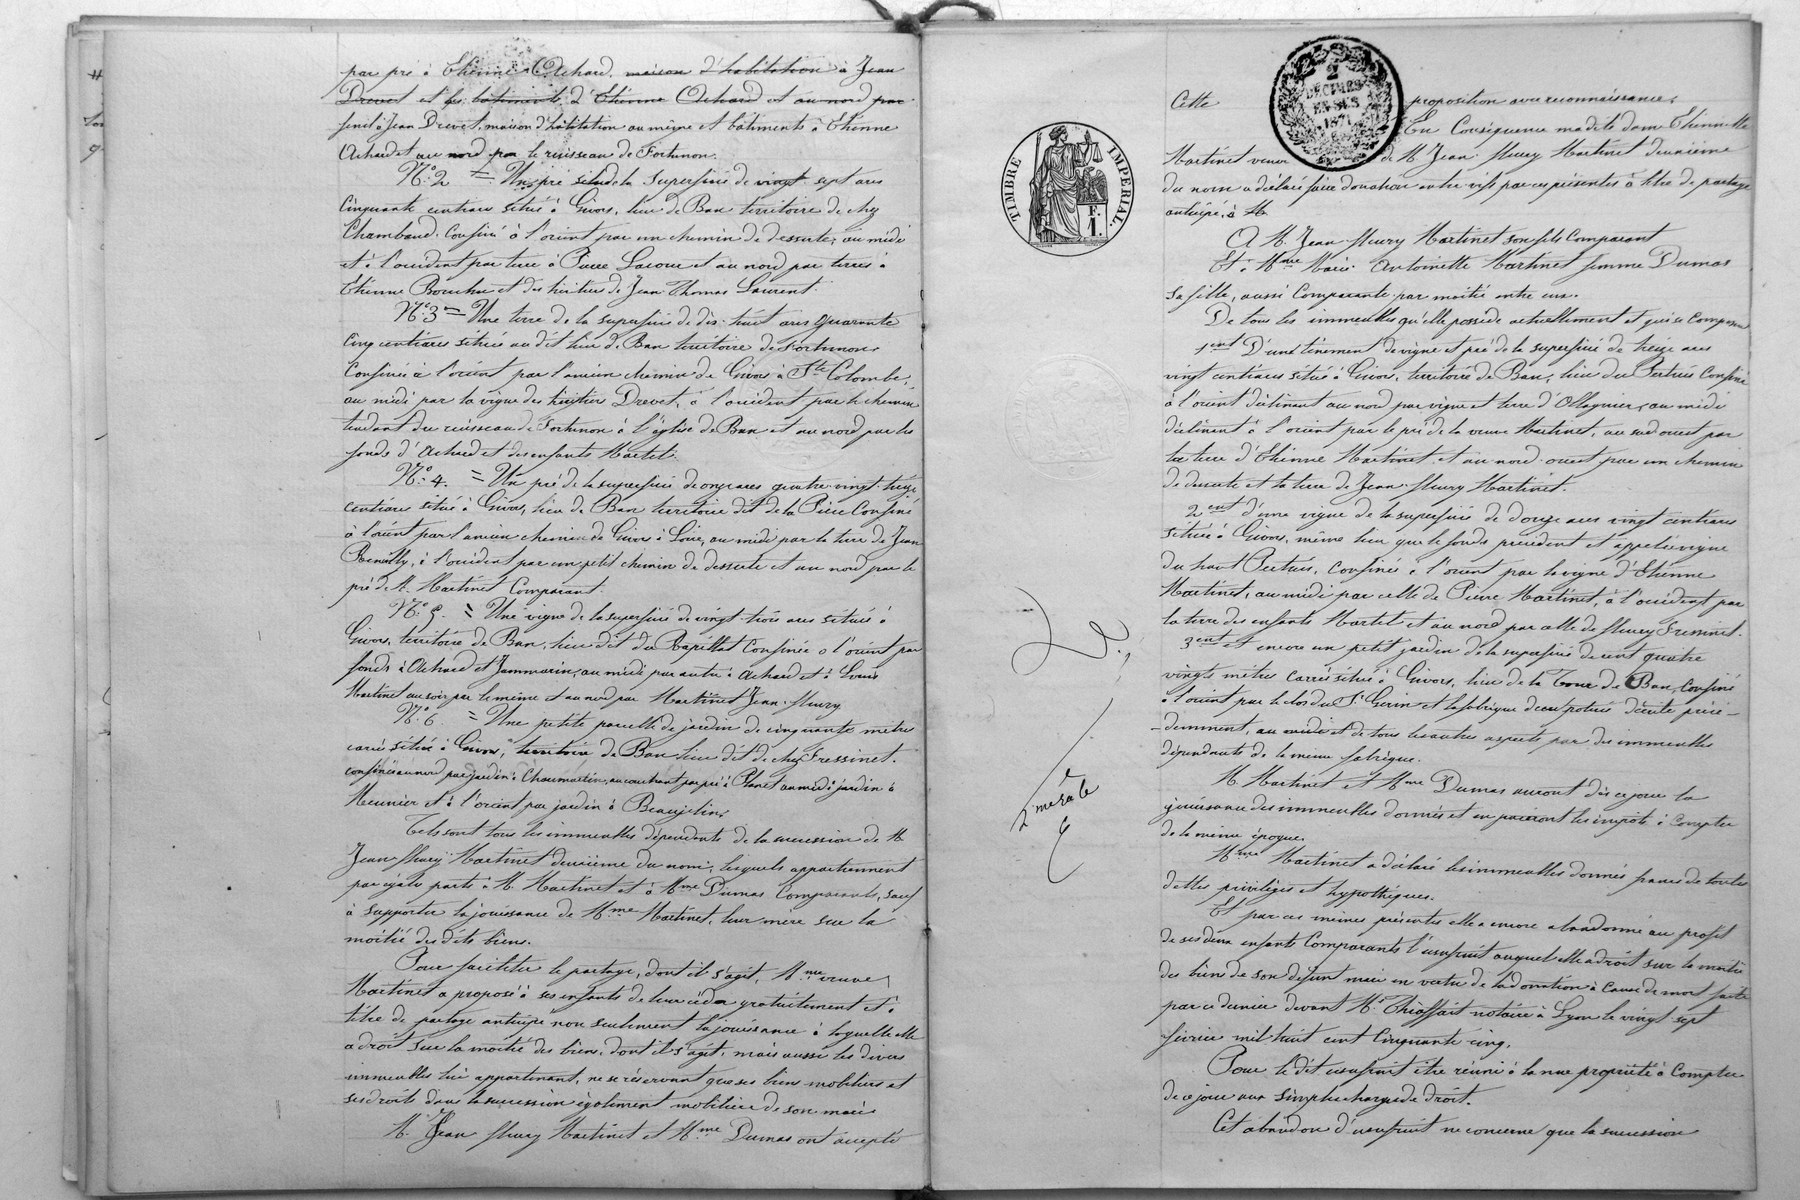 par pré à Etienne Achard, maison d'habitation à Jean
Drevet et les bâtiments d'Etienne Achard et au nord par
seuil à Jean Drevet, maison d'habitation au même et bâtiments à Etienne
Achard et au nord par le ruisseau de Fortunon.
N° 2 = Un pré situé de la superficie de vingt sept ares
Cinquante centiares situé à Givors, lieu de Ban territoire de chez
Chambaud. Confiné à l'orient par un chemin de desserte, au midi
et à l'occident par terre à Pierre Lacour et au nord par terres à
Etienne Bouchu et des héritiers de Jean Thomas Laurent.
N° 3 = Une terre de la superficie de dix huit ares quarante
cinq centiares située au dit lieu de Ban territoire de Fortunon,
Confinée à l'orient par l'ancien chemin de Givors à Ste Colombe,
au midi par la vigne des héritiers Drevet, à l'occident par le chemin
tendant du ruisseau de Fortunon à l'église de Ban et au nord par les
fonds d'Achard et des enfants Martel.
N° 4. = Un pré de la superficie de onze ares quatre vingt treize
centiares situé à Givors, lieu de Ban territoire dit de la Pierre Confiné
à l'orient par l'ancien chemin de Givors à Loire, au midi par la terre de Jean
à l'occident par un petit chemin de desserte et au nord par le
pré de M. Martinet Comparant.
N° 5. = Une vigne de la superficie de vingt trois ares située à
Givors, territoire de Ban, lieu dit du Rapillat Confinée à l'orient par
fonds à Achard et Jammarin, au midi par autre à Achard et à Louis
Martinet au soir par le même et au nord par Martinet Jean Fleury
N° 6. = Une petite parcelle de jardin de cinquante mètres
carrés située à Givors, territoire de Ban lieu dit de chez Fressinet.
confinée au nord par jardin à Chaumartin, au couchant par pré à Planet au midi jardin à
Meunier et à l'orient par jardin à Beaujelin,
Tels sont tous les immeubles dépendants de la succession de M.
Jean Fleury Martinet deuxième du nom, lesquels appartiennent
par égales parts à M. Martinet et à Mme Dumas Comparants, sauf
à supporter la jouissance de Mme Martinet, leur mère sur la
moitié des dits biens.
Pour faciliter le partage, dont il s'agit, Mme veuve
Martinet a proposé à ses enfants de leur céder gratuitement et à
titre de partage anticipé non seulement la jouissance à laquelle elle
a droit sur la moitié des biens, dont il s'agit, mais aussi les divers
immeubles lui appartenant, ne se réservant que ses biens mobiliers et
ses droits dans la succession également mobilière de son mari
M. Jean Fleury Martinet et Mme Dumas ont accepté
2
DÉCIMES
EN SUS
1871
TIMBRE IMPÉRIAL.
F.
1.
2me rôle
Cette proposition avec reconnaissance,
En Conséquence ma dite dame Etiennette
Martinet veuve de M. Jean Fleury Martinet deuxième
du nom a déclaré faire donation entre vifs par ces présentes à titre de partage
anticipé, à M
A M. Jean Fleury Martinet son fils Comparant
Et à Mme Marie Antoinette Martinet femme Dumas
sa fille, aussi Comparante par moitié entre eux.
De tous les immeubles qu'elle possède actuellement et qui se Composent
1ent D'un ténement de vigne et pré de la superficie de treize ares
vingt centiares situé à Givors, territoire de Ban, lieu du Pertuis Confiné
à l'orient déclinant au nord par vigne et terre d'Ollagnier, au midi
déclinant à l'orient par le pré de la veuve Martinet, au sud ouest par
la terre d'Etienne Martinet et au nord ouest par un chemin
de desserte et la terre de Jean Fleury Martinet.
2ent d'une vigne de la superficie de douze ares vingt centiares
située à Givors, même lieu que le fonds précédent et appelée vigne
du haut Pertuis, Confinée à l'orient par la vigne d'Etienne
Martinet, au midi par celle de Pierre Martinet, à l'occident par
la terre des enfants Martel et au nord par celle de Fleury Freminet.
3ent et encore un petit jardin de la superficie de cent quatre
vingts mètres Carrés situé à Givors, lieu de la Tour de Ban, Confiné
à l'orient par le clos du Sr Gerin et la fabrique de poterie décrite précé-
-demment, au midi et de tous les autres aspects par des immeubles
dépendants de la même fabrique.
M. Martinet et Mme Dumas auront dès ce jour la
jouissance des immeubles donnés et en paieront les impôts à Compter
de la même époque.
Mme Martinet a déclaré les immeubles donnés francs de toutes
dettes privilèges et hypothèques.
Et par ces mêmes présentes elle a encore abandonné au profit
de ses deux enfants Comparants l'usufruit auquel elle a droit sur la moitié
des biens de son défunt mari en vertu de la donation à Cause de mort faite
par ce dernier devant Me Thiaffait notaire à Lyon le vingt sept
février mil huit cent Cinquante cinq.
Pour le dit usufruit être réuni à la nue propriété à Compter
de ce jour aux simples charges de droit.
Cet abandon d'usufruit ne concerne que la succession